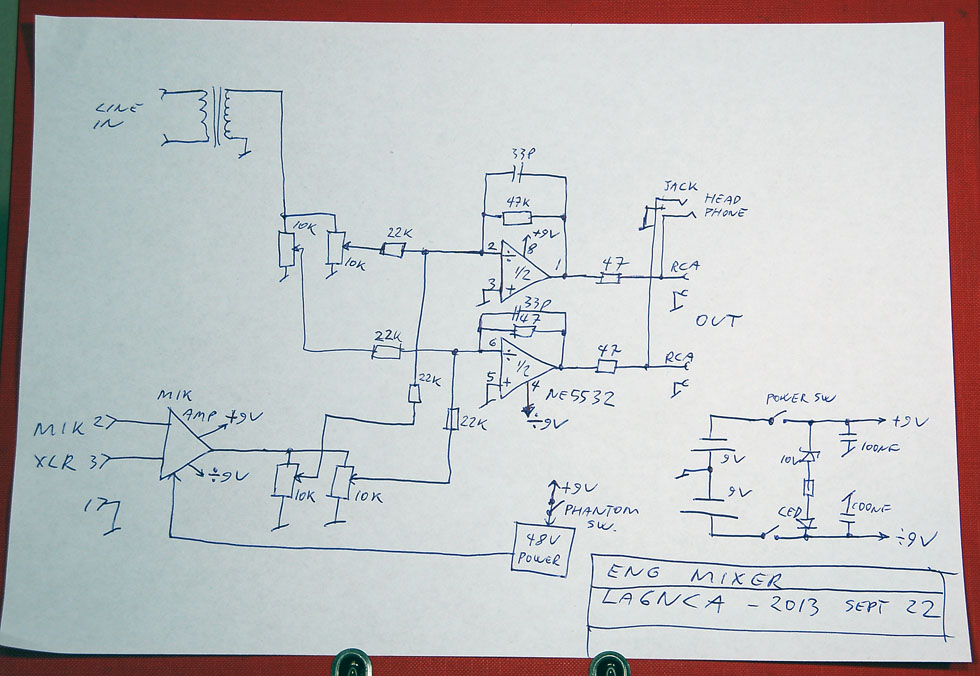 LINE
IN
10K
10K
22K
33P
47K
+9V
2
8
÷
1/2
1
3
+
47
JACK
HEAD
PHONE
RCA
OUT
22K
33P
47
6
÷
1/2
5
+
4
NE5532
÷9V
47
RCA
22K
22K
MIK
AMP
+9V
÷9V
MIK 2
XLR 3
1
10K
10K
+9V
PHANTOM
SW.
48V
POWER
POWER SW
+9V
9V
9V
10V
LED
100NF
100NF
÷9V
ENG MIXER
LA6NCA - 2013 SEPT 22